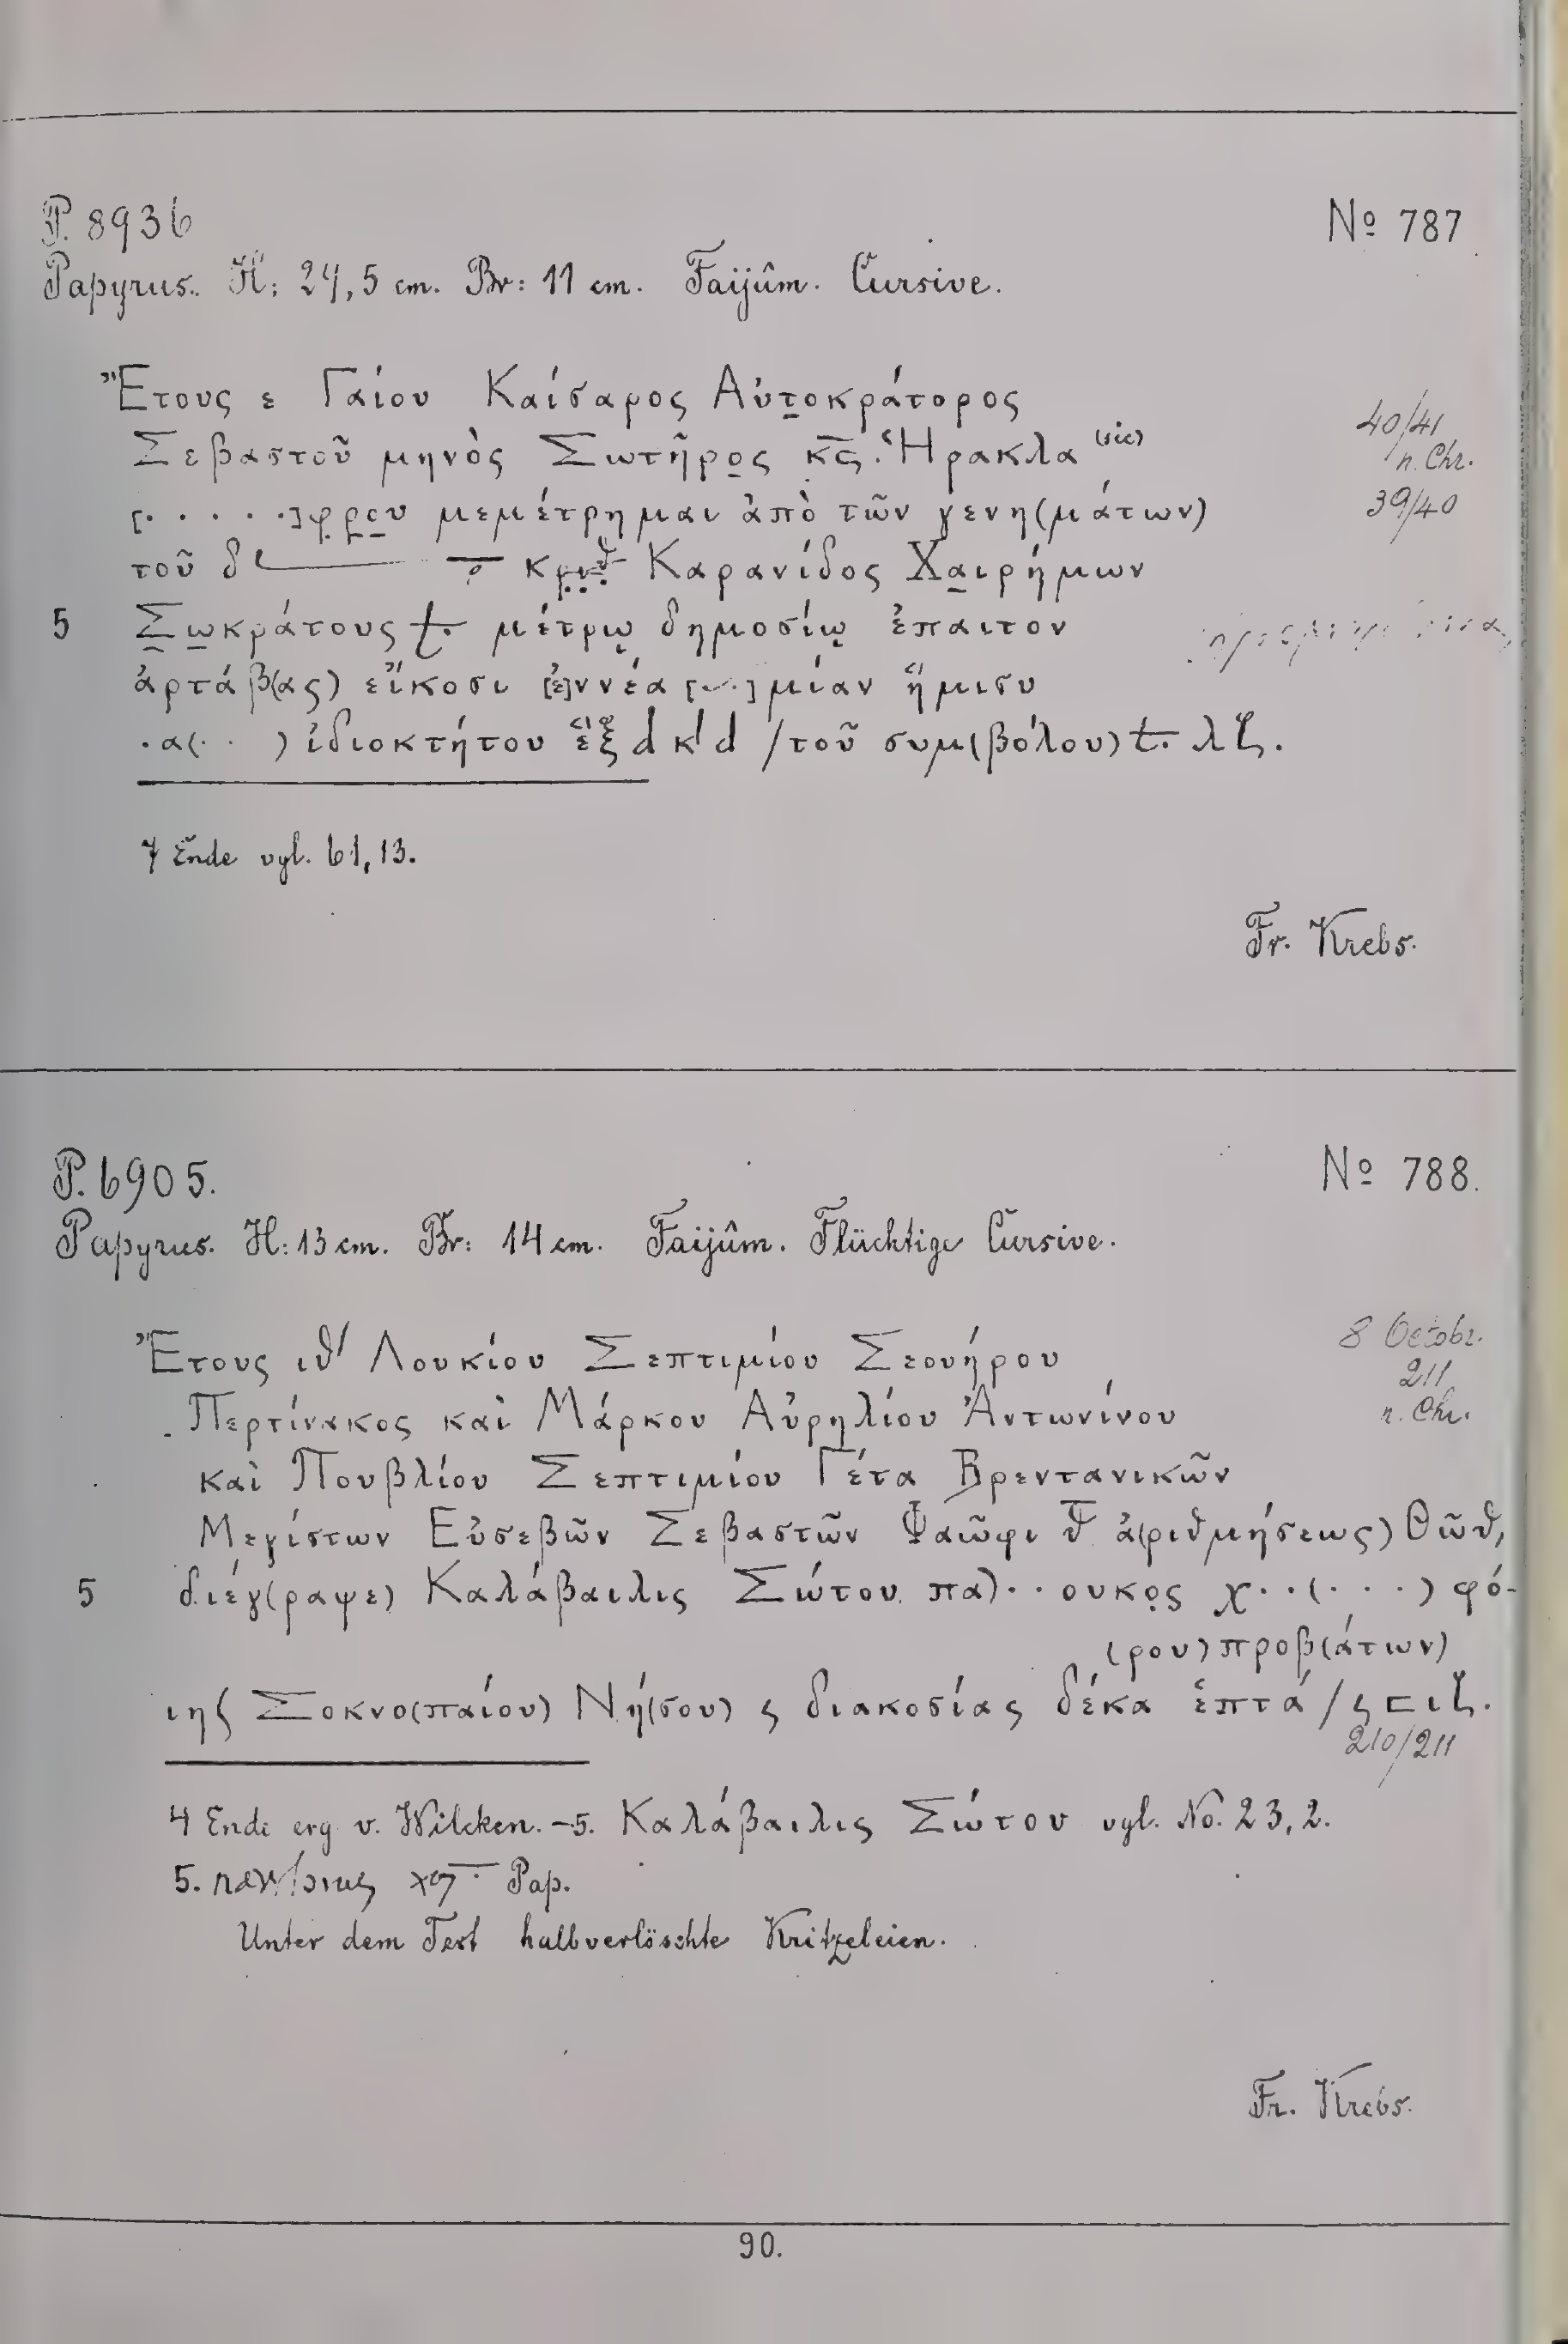 P. 8936 № 787
Papyrus. H: 24,5 cm. Br: 11 cm. Faijûm. Cursive.
Ἔτους ε Γαίου Καίσαρος Αὐτ̣οκράτορος 40/41
Σεβαστοῦ μηνὸς Σωτῆρο̣ς κ̅ς̅. Ἡρακλα (sic) n. Chr.
[· · · · ·]φ̣ρ̣ο̣υ μεμέτρημαι ἀπὸ τῶν γενη(μάτων) 39/40
τοῦ δ κρ̣ι̣θ̣ Καρανίδος Χα̣ιρήμων
5 Σ̣ω̣κράτους μέτρῳ δημοσίῳ ἐπαιτον
ἀρτάβ(ας) εἴκοσι [ἐ]ννέα μίαν ἥμισυ
·α(· · ) ἰδιοκτήτου ἓξ d κ'd /τοῦ συμ(βόλου) λζ.
7 Ende vgl. 61,13.
Fr. Krebs.
P. 6905. № 788.
Papyrus. H: 13 cm. Br: 14 cm. Faijûm. Flüchtige Cursive.
Ἔτους ιθ' Λουκίου Σεπτιμίου Σεουήρου 8 Octobr.
Περτίνακος καὶ Μάρκου Αὐρηλίου Ἀντωνίνου 211 n. Chr.
καὶ Πουβλίου Σεπτιμίου Γέτα Βρεντανικῶν
Μεγίστων Εὐσεβῶν Σεβαστῶν Φαῶφι θ̅ ἀ(ριθμήσεως) Θῶθ,
5 διέγ(ραψε) Καλάβαιλις Σώτου πα)· · ουκο̣ς χ· ·(· · ·) φό-
(ρου) προβ(άτων)
ιηϛ Σοκνο(παίου) Νή(σου) ς διακοσίας δέκα ἑπτά / ς ⊏ ιζ.
210/211
4 Ende erg. v. Wilcken. – 5. Καλάβαιλις Σώτου vgl. No. 23, 2.
5. Pap.
Unter dem Text halbverlöschte Kritzeleien.
Fr. Krebs.
90.